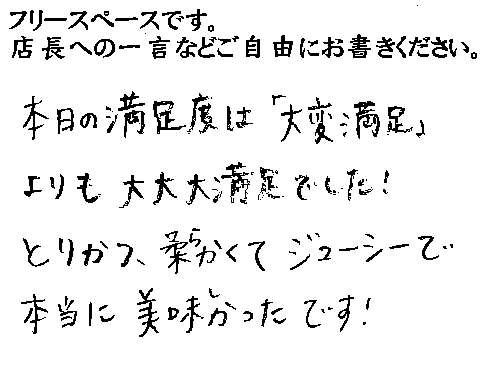 フリースペースです。
店長への一言などご自由にお書きください。
本日の満足度は「大変満足」
よりも大大大満足でした!
とりかつ、柔らかくてジューシーで
本当に美味しかったです!